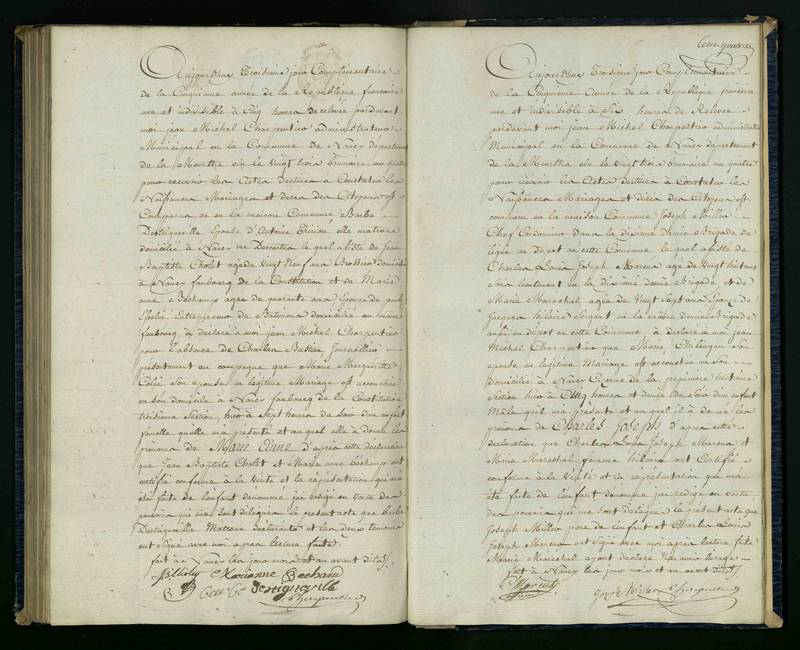 Aujourdhui Troisieme jour Complementaire
de la Cinquieme année de la Republique francaise
une et indivisible à Cinq heures de relevée pardevant
moi jean Michel Charpentier administrateur
Municipal en la Commune de Nancy departement
de la Meurthe elu le Vingt trois brumaire an quatre
pour recevoir les Actes destinés à Constater les
Naissances Mariages et deces des Citoyens est
Comparue en la maison Commune Barbe
Destigneville Epouse d'Antoine Thirion elle matrone
domiciliée à Nancy rue le quel assisté de Jean
Baptiste Cholet agé de Vingt Neuf ans Brossier domicilié
à Nancy faubourg de la Constitution et de Marie
anne Bechamp agée de quarante ans Epouse de paul
Entrepreneur de Batimens domicilié au même
faubourg à déclaré à moi jean Michel Charpentier
pour l'absence de Charles Bastien Journallier
presentement en campagne que Marie Marguerite
Colin son epouse en légitime Mariage est accouchée
en son domicile à Nancy faubourg de la Constitution
troisieme Section, hier à Sept heures du Soir d'un enfant
femelle qu'elle m'a présenté et au quel elle a donné les
prénoms de Marie Anne d'après cette déclaration
que Jean Baptiste Cholet et Marie anne Bechamp ont
certifié conforme à la Verité et la représentation qui m'a
été faite de l'enfant denommé j'ai redigé en vertu des
pouvoirs qui me sont délégués le présent acte que Barbe
Destigneville Matrone déclarante et les deux temoins
ont signé avec moi apres lecture faite
fait à Nancy les jour mois et an avant dits
Marianne Bechamp
Barbe Destigneville
Charpentier
Aujourdhui Troisieme jour Complementaire
de la Cinquieme Année de la Republique francaise
une et indivisible à Six heures de Relevée
pardevant moi jean Michel Charpentier administrateur
Municipal en la Commune de Nancy departement
de la Meurthe elu le Vingt trois brumaire an quatre
pour recevoir les Actes destinés à Constater les
Naissances Mariages et deces des Citoyens est
comparu en la maison Commune Joseph Millier
Chef Cordonnier dans la dixieme Demie Brigade de
ligne en dépot en cette Commune le quel assisté de
Charles Louis Joseph agé de Vingt huit ans
sous lieutenant en la dixieme demie Brigade et de
Marie Marechal agée de Vingt Sept ans Epouse de
Jacques hilaire Sergent en la même demie Brigade
aussi en dépot en cette Commune à déclaré à moi jean
Michel Charpentier que Marie son
epouse en légitime Mariage est accouchée en son
domicile à Nancy Caserne de la pépiniere huitieme
Section hier à Cinq heures et demie du Soir d'un enfant
Mâle quil m'a présenté et au quel il à donné les
prenoms de Charles Joseph d'après cette
déclaration que Charles Louis Joseph et
Marie Marechal femme hilaire ont Certifié
conforme à la Vérité et la représentation qui m'a
été faite de l'enfant denommé jai redigé en vertu
des pouvoirs qui me sont délégués le présent acte que
Joseph Millier pere de l'enfant et Charles Louis
Joseph ont signé avec moi après lecture faite
Marie Maréchal ayant déclaré
fait à Nancy les jour mois et an avant dits
Joseph Millier Charpentier